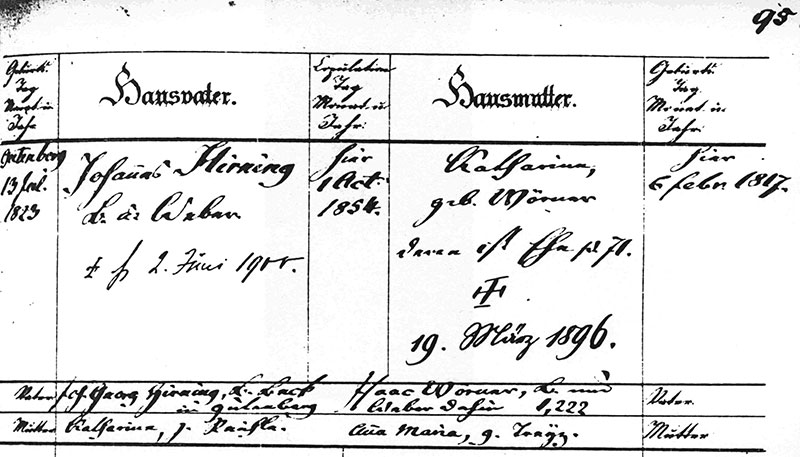 95
Geburts
Tag
Monat u
Jahr
Hausvater.
Copulations
Tag
Monat u
Jahr.
Hausmutter.
Geburts
Tag
Monat u
Jahr.
Gutenberg
13 Jul.
1823
Johannes Hirning
B. u. Weber
2. Juni 1900.
hier
1 Oct.
1854.
Katharina,
geb. Wörner
deren ist Ehe 70.
19. März 1896.
hier
6 Febr. 1817.
Vater
Georg Hirning, B. Beck
in Gutenberg
Isaac Wörner, B. und
Weber dahier 1,222
Vater
Mutter
Katharina, g.
Anna Maria, g.
Mutter